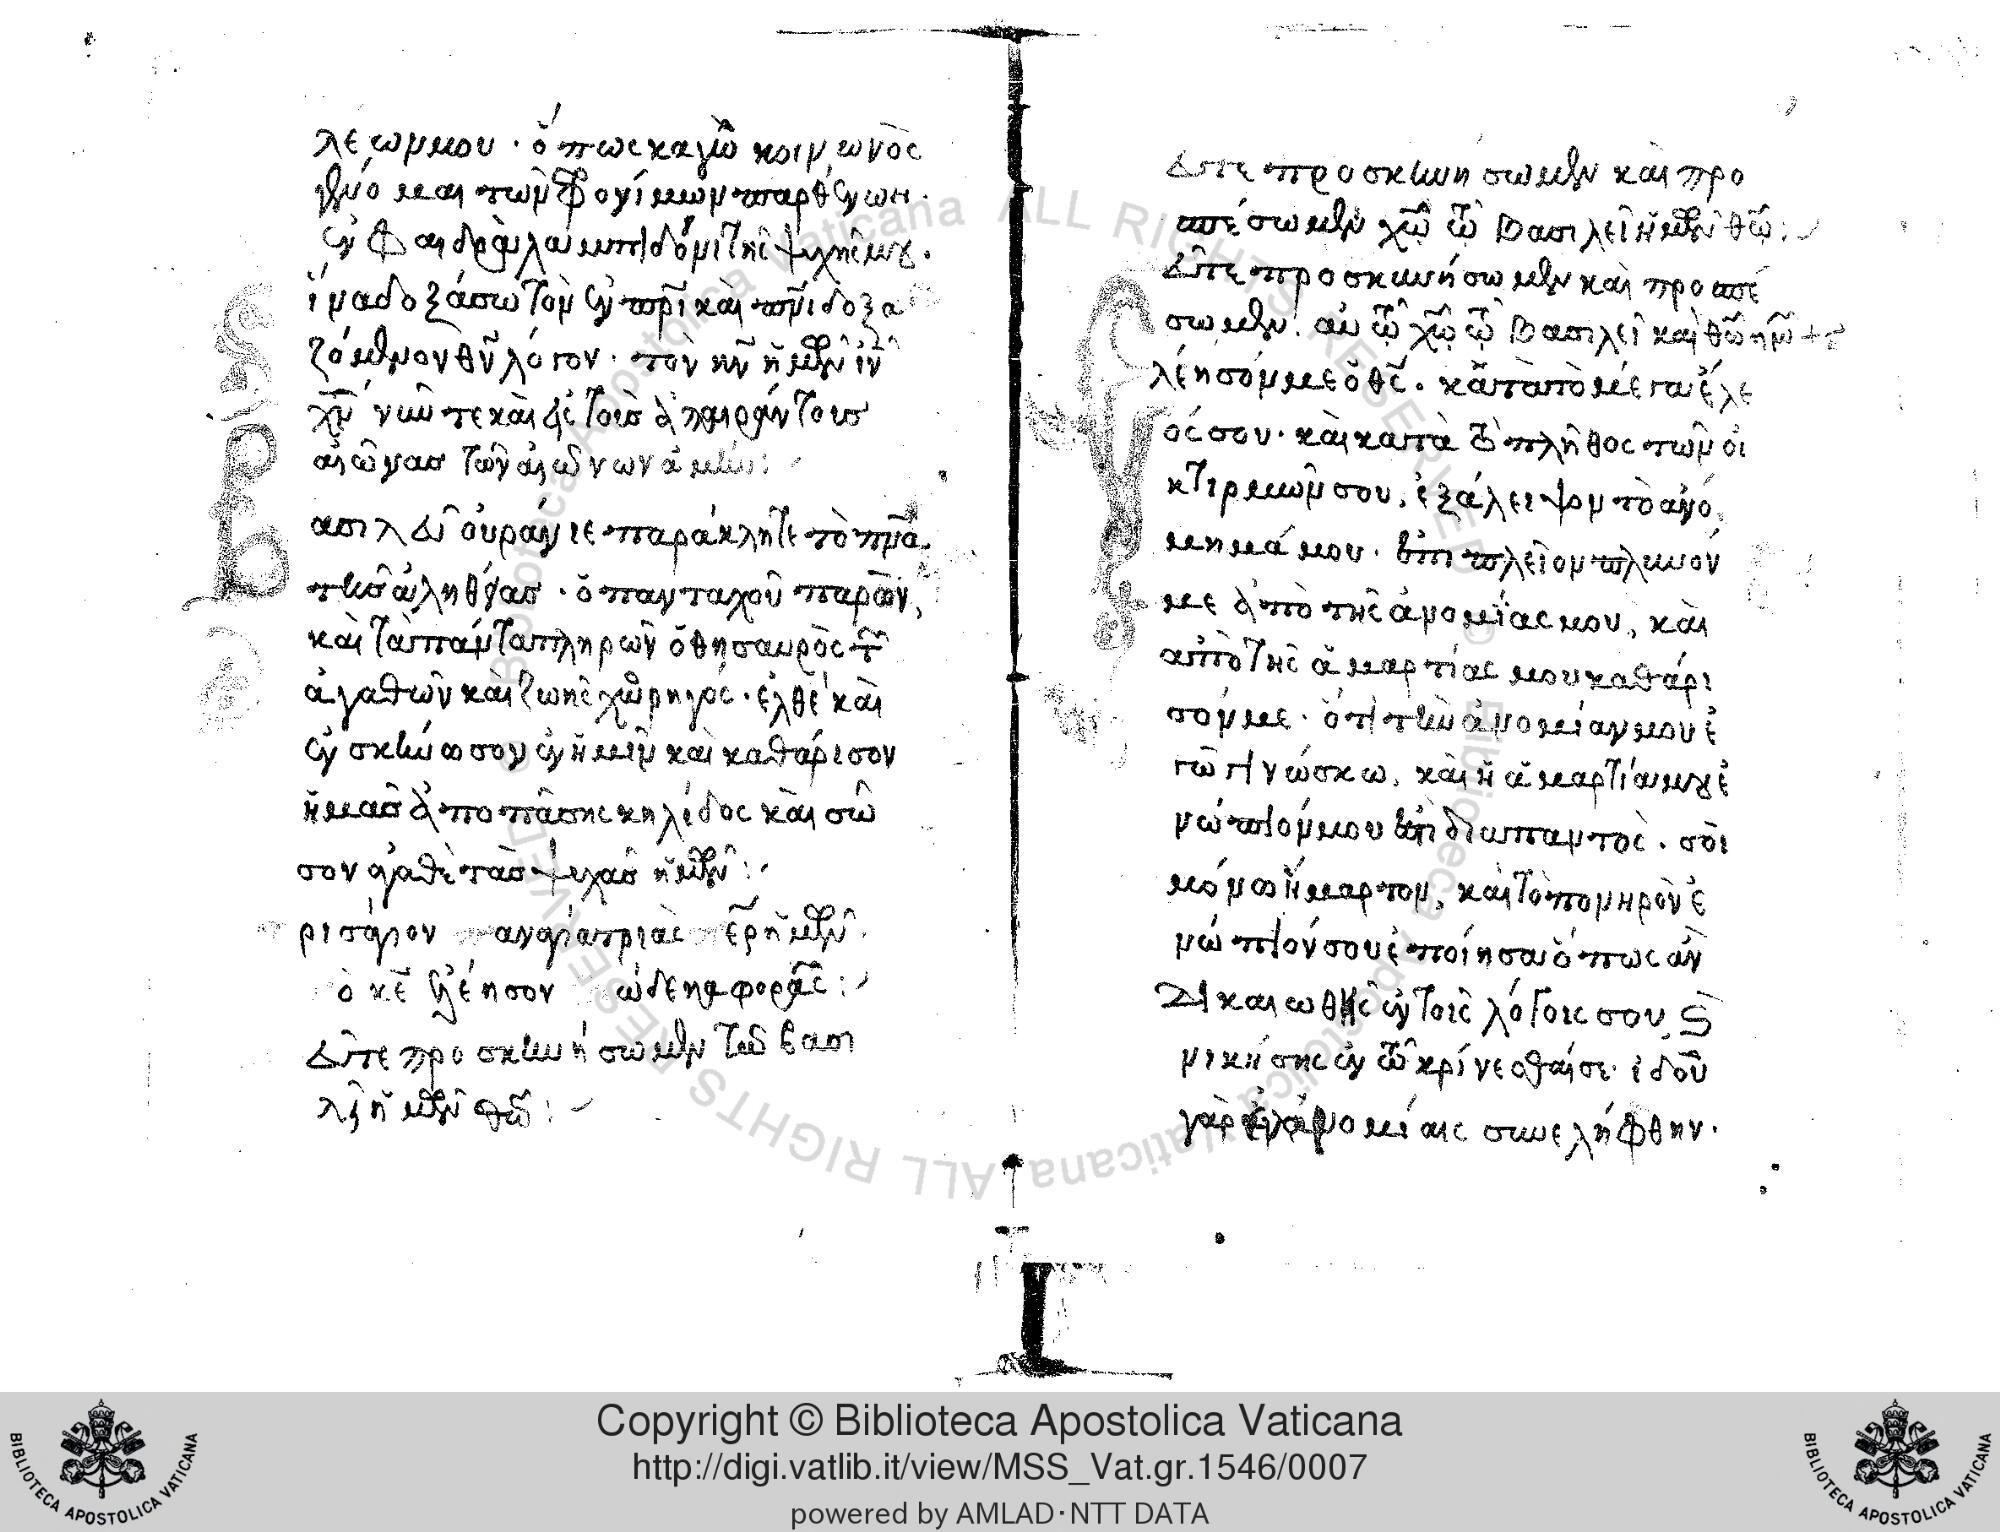 λέωμμου · ὅπως καγὼ κοινωνὸς
γένομαι τῶν φρονίμων παρθένων ·
ἐν φαιδρᾶ λαμπάδι τῆς ψυχῆς μου ·
ἵνα δοξάσω τὸν ἐν πρι καὶ πνι δοξα
ζόμενον θν λόγον · τὸν κν ἡμῶν ιν
χν νῦν τε καὶ εἰς τοὺς ἀπεράντους
αἰῶνας τῶν αἰώνων ἀμήν :
ασιλεῦ οὐράνιε παράκλητε τὸ πνα
τῆς ἀληθείας · ὁ πανταχοῦ παρὼν,
καὶ τὰ πάντα πληρῶν ὁ θησαυρὸς τῶν
ἀγαθῶν καὶ ζωῆς χωρηγός · ἐλθὲ καὶ
ἐν σκήνωσον ἐν ἡμῖν καὶ καθάρισον
ἡμᾶς ἀπο πάσης κηλίδος καὶ σῶ
σον ἀγαθὲ τὰς ψυχὰς ἡμῶν :
ρισάγιον παναγία τριὰς περ ἡμῶν
ὁ κε ἐλέησον
δεῦτε προσκυνήσωμεν τῶ βασι
λεῖ ἡμῶν θῶ :
Δεῦτε προσκυνήσωμεν καὶ προ
πέσωμεν χῶ τῶ βασιλεῖ ἡμῶν θῶ :
Δεῦτε προσκυνήσωμεν καὶ προπέ
σωμεν αὐτῶ χῶ τῶ βασιλεῖ καὶ θῶ ημῶ +
λέησόν με ὁ θς · κατὰ τὸ μέγα ἔλε
ός σου · καὶ κατὰ τὸ πλῆθος τῶν οἰ
κτιρμῶν σου, ἐξάλειψον τὸ ἀνό
μημά μου · ἐπιπλεῖον πλυνόν
με ἀπὸ τῆς ἀνομίας μου, καὶ
απὸ τῆς ἁμαρτίας μου καθάρι
σόν με · ὅτι τὴν ἀνομίαν μου ἐ
γῶ γινώσκω, καὶ ἡ ἁμαρτία μου ἐ
νώπιόν μου ἐστὶ διαπαντὸς · σοὶ
μόνω ἥμαρτον, καὶ τὸ πονηρὸν ἐ
νώπιόν σου ἐποίησα ὅπως ἀν
Δικαιωθῆς ἐν τοῖς λόγοις σου, καὶ
νικήσης ἐν τῶ κρίνεσθαί σε · ἰδοῦ
γὰρ ἐν ἀνομίαις συνελήφθην ·
Copyright © Biblioteca Apostolica Vaticana
http://digi.vatlib.it/view/MSS_Vat.gr.1546/0007
powered by AMLAD·NTT DATA